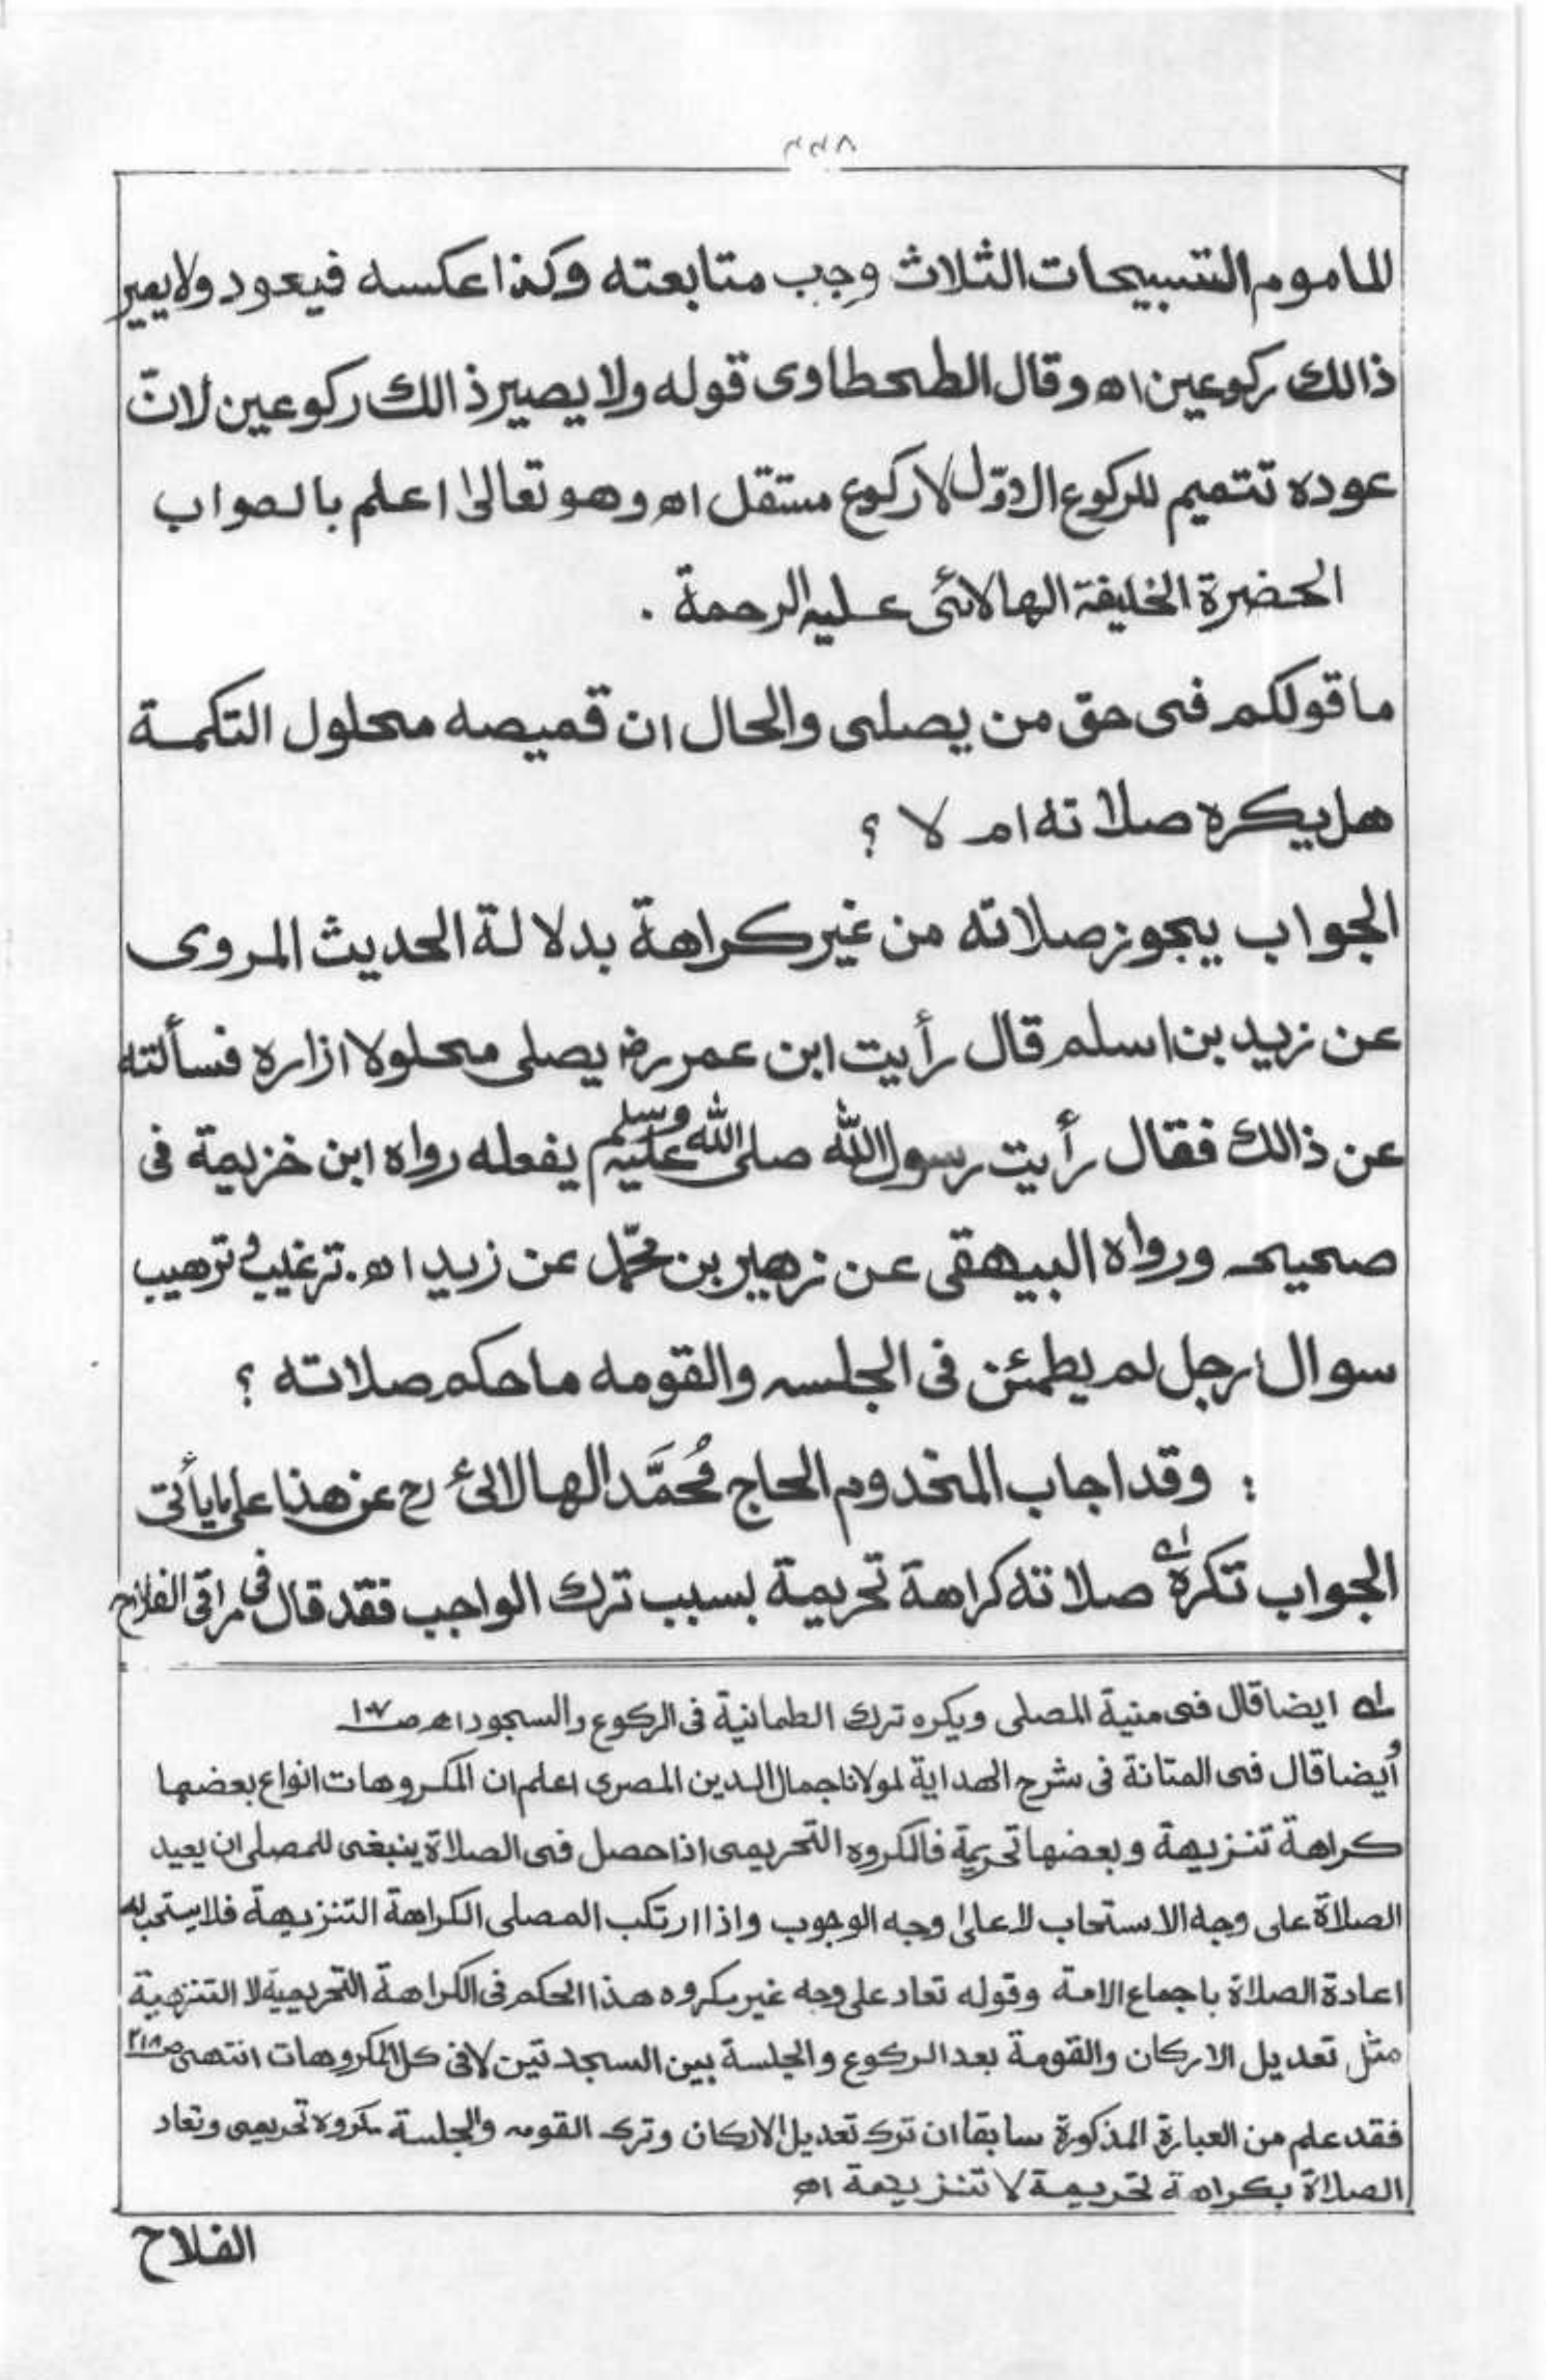 ٢٢٨
للماموم التسبيحات الثلاث وجب متابعته وكذا عكسه فيعود ولايصير
ذالك ركوعين اھ وقال الطحطاوى قوله ولا يصير ذالك ركوعين لانّ
عوده تتميم للركوع الاوّل لا ركوع مستقل اھ وهو تعالىٰ اعلم بالصواب
الحضرة الخليفة الهالائى عليه الرحمة .
ما قولكم فى حق من يصلى والحال ان قميصه محلول التكمة
هل يكره صلاته ام لا ؟
الجواب يجوز صلاته من غير كراهة بدلالة الحديث المروى
عن زيد بن اسلم قال رأيت ابن عمر رض يصلى محلولا ازاره فسألته
عن ذالك فقال رأيت رسول الله صلى الله عليه وسلم يفعله رواه ابن خزيمة فى
صحيحه ورواه البيهقى عن زهير بن محمّد عن زيد اھ. ترغيب و ترهيب
سوال: رجل لم يطمئن فى الجلسه والقومه ما حكم صلاته ؟
: وقد اجاب المخدوم الحاج مُحَمَّد الهالائىٔ رح عن هذا على ما يأتى
الجواب تكره له صلاته كراهة تحريمة بسبب ترك الواجب فقد قال فى مراقى الفلاح
له ايضا قال فى منية المصلى ويكره ترك الطمانية فى الركوع والسجود اھ صـ ١٠٧
و أيضا قال فى المتانة فى شرح الهداية لمولانا جمال الدين المصرى اعلم ان المكروهات انواع بعضها
كراهة تنزيهة وبعضها تحريمة فالكروه التحريمى اذا حصل فى الصلاة ينبغى للمصلى ان يعيد
الصلاة على وجه الاستحاب لا علىٰ وجه الوجوب واذا ارتكب المصلى الكراهة التنزيهة فلا يستحب له
اعادة الصلاة باجماع الامة وقوله تعاد على وجه غير مكروه هذا الحكم فى الكراهة التحريمية لا التنزهية
مثل تعديل الاركان والقومة بعد الركوع والجلسة بين السجدتين لا فى كل المكروهات انتهىٰ صـ ٢١٨
فقد علم من العبارة المذكورة سابقا ان ترك تعديل الاركان وترك القومه والجلسة مكروه تحريمى وتعاد
الصلاة بكراهة تحريمة لا تنزيهة اھ
الفلاح